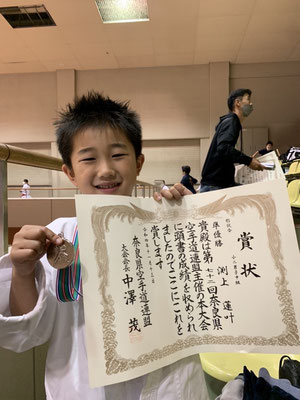 賞状
形試合
小六男子中級
準優勝 渕上蓮叶
貴殿は第七・二回奈良県
空手道連盟主催の本大会
に頭書の成績を収められ
ましたのでここにこれを
賞します
奈良県空手道連盟
大会会長 中澤茂